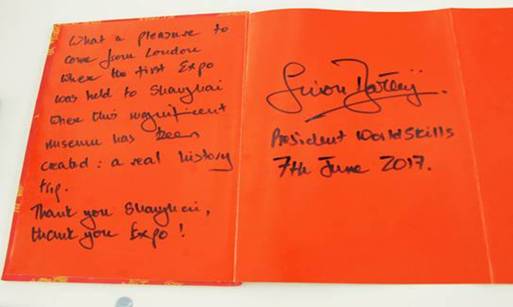 What a pleasure to
come from London
when the first Expo
was held to Shanghai
where this magnificent
museum has been
created : a real history
trip.
Thank you Shanghai,
thank you Expo !
Simon Bartley.
President WorldSkills
7th June 2017.